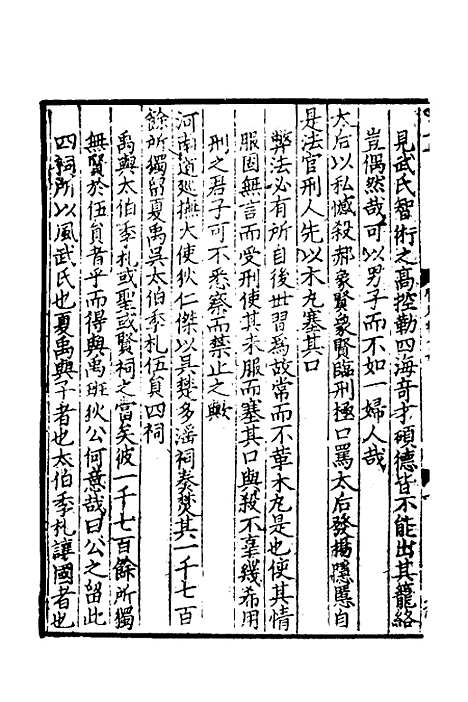 見武氏智術之高控勒四海奇才碩德皆不能出其籠絡
豈偶然哉可以男子而不如一婦人哉
太后以私憾殺郝象賢象賢臨刑極口罵太后發揚隱慝自
是法官刑人先以木丸塞其口
弊法必有所自後世習為故常而不革木丸是也使其情
服固無言而受刑使其未服而塞其口與殺不辜幾希用
刑之君子可不悉察而禁止之歟
河南道巡撫大使狄仁傑以吳楚多淫祠奏焚其一千七百
餘所獨留夏禹吳太伯季札伍員四祠
禹與太伯季札或聖或賢祠之當矣彼一千七百餘所獨
無賢於伍員者乎而得與禹班狄公何意哉曰公之留此
四祠所以風武氏也夏禹與子者也太伯季札讓國者也